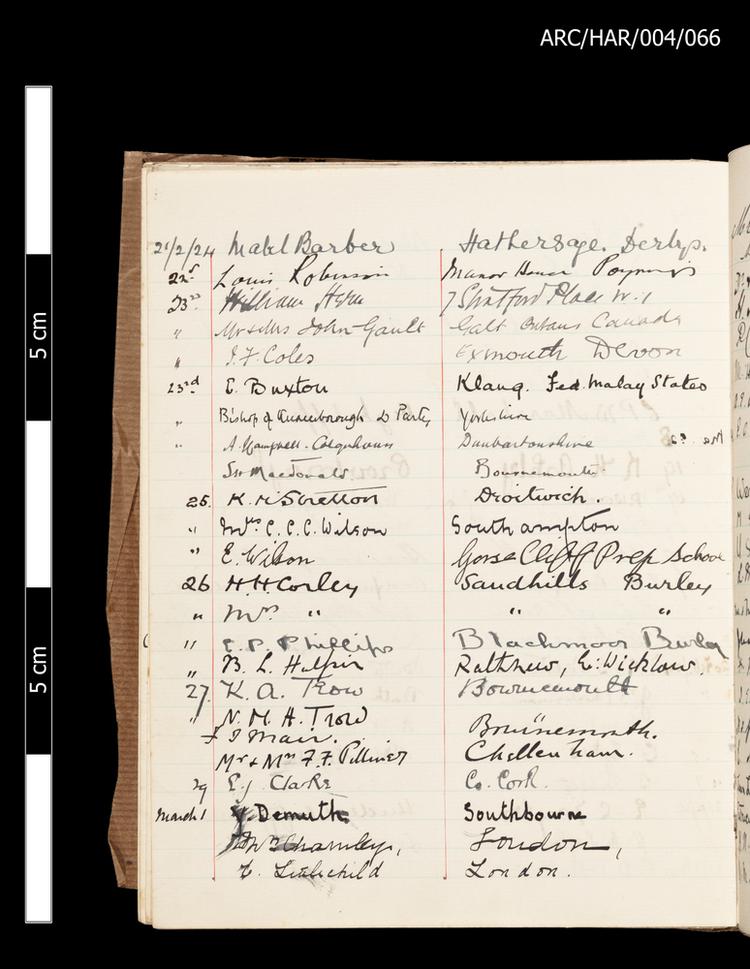 ARC/HAR/004/066
5 cm
5 cm
21/2/24 Mabel Barber Hathersage. Derbys.
22nd Louis Robinson Manor House Poynings
23rd William 7 Stratford Place W.1
" Mr & Mrs John Gault Galt Canada
" J. F. Coles Exmouth Devon
23rd E. Buxton Klang. Fed. Malay States
" Bishop of Knaresborough & Party Yorkshire
" A. Campbell-Colquhoun Dunbartonshire
Macdonald Bournemouth
25. Stretton Droitwich.
" Mrs C. C. C. Wilson Southampton
" E. Wilson Gorse Cliff Prep School
26 H. H. Corley Sandhills Burley
" Mrs " " "
" E. P. Phillips Blackmoor Burley
" B. L. Halpin Rathnew, Co: Wicklow
27. K. A. Trow Bournemouth
" N. M. H. Trow
J Mair. Bournemouth.
Mr & Mrs F. F. Cheltenham.
29 E. J. Clarke Co. Cork.
March 1 Demuth Southbourne
Mrs Charnley, London,
London.